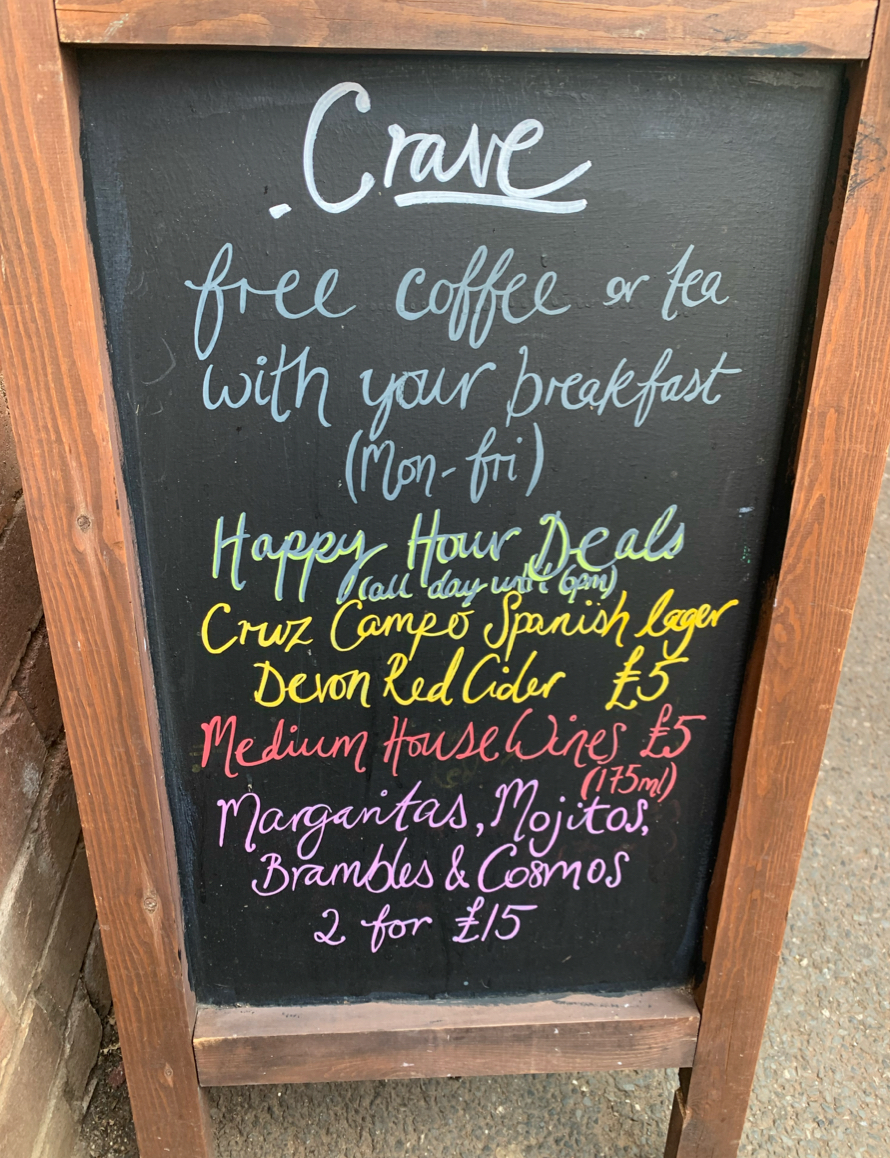 Crave
free coffee or tea
with your breakfast
(Mon-fri)
Happy Hour Deals
(all day until 6pm)
Cruz Campo Spanish lager
Devon Red Cider £5
Medium House Wines £5
(175ml)
Margaritas, Mojitos,
Brambles & Cosmos
2 for £15